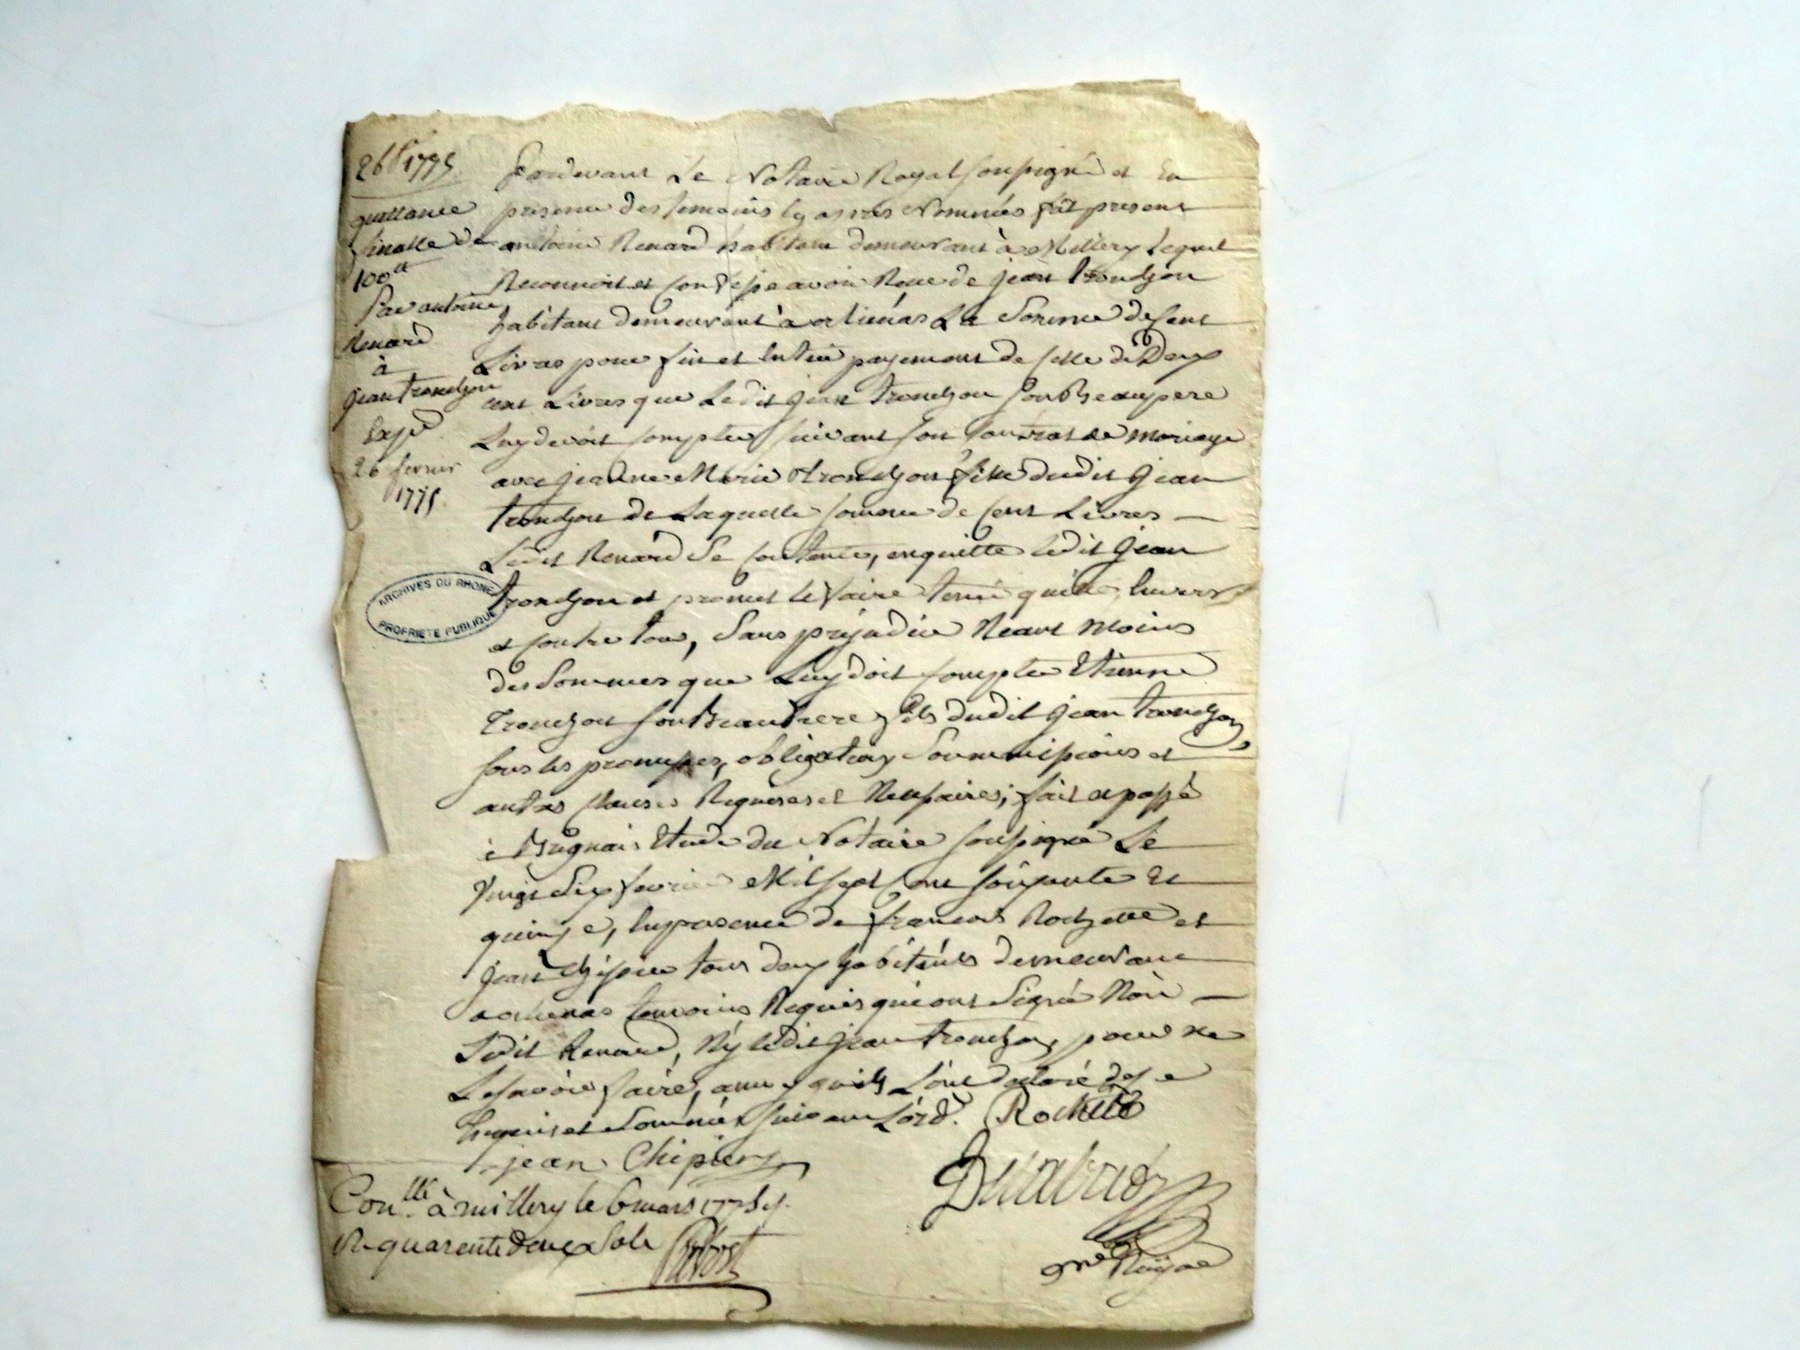 26 f 1775
quittance
finalle de
100 ll
Par antoine
Renard
à
jean tronchon
Exp.
26 fevrier
1775
ARCHIVES DU RHONE
PROPRIETE PUBLIQUE
Pardevant Le Notaire Royal soussigné et En
presence des temoins cy après Nommés fût present
antoine Renard habitant demeurant à Millery Lequel
Reconnoit et confesse avoir Receu de jean tronchon
habitant demeurant à orlienas La Somme de Cent
Livres pour fin et Entier payement de Celle de Deux
cent Livres que Ledit jean tronchon son Beaupere
Luy devoit compter suivant son Contrat de mariage
avec jeanne Marie tronchon fille dudit jean
tronchon de Laquelle somme de Cent Livres
Ledit Renard Se contente, en quitte ledit jean
tronchon et promet le faire tenir quitte Envers
et contre tous, Sans prejudice Neant moins
des Sommes que Luy doit compter Etienne
Tronchon son Beaufrere fils dudit jean tronchon
sous les promesses, obligations Soummissions et
autres clauses Requises et Necessaires; fait et passé
à Brignais Etude du Notaire soussigné Le
Vingt Six fevrier Mil sept Cent soixante Et
quinze, En presence de francois Rochette et
jean Chipier tous deux habitants demeurant
a orlienas temoins Requis qui ont Signé Non
Ledit Renard, Ny ledit jean tronchon, pour ne
Le scavoir faire, ainsy quils L'ont declaré de ce
Enquis et Sommés suivant L'ord. Rochette
jean Chipier
Con.lle à millery le 6 mars 1775
R quarente deux Sols
Prévost
Durabrad
Nre Royal